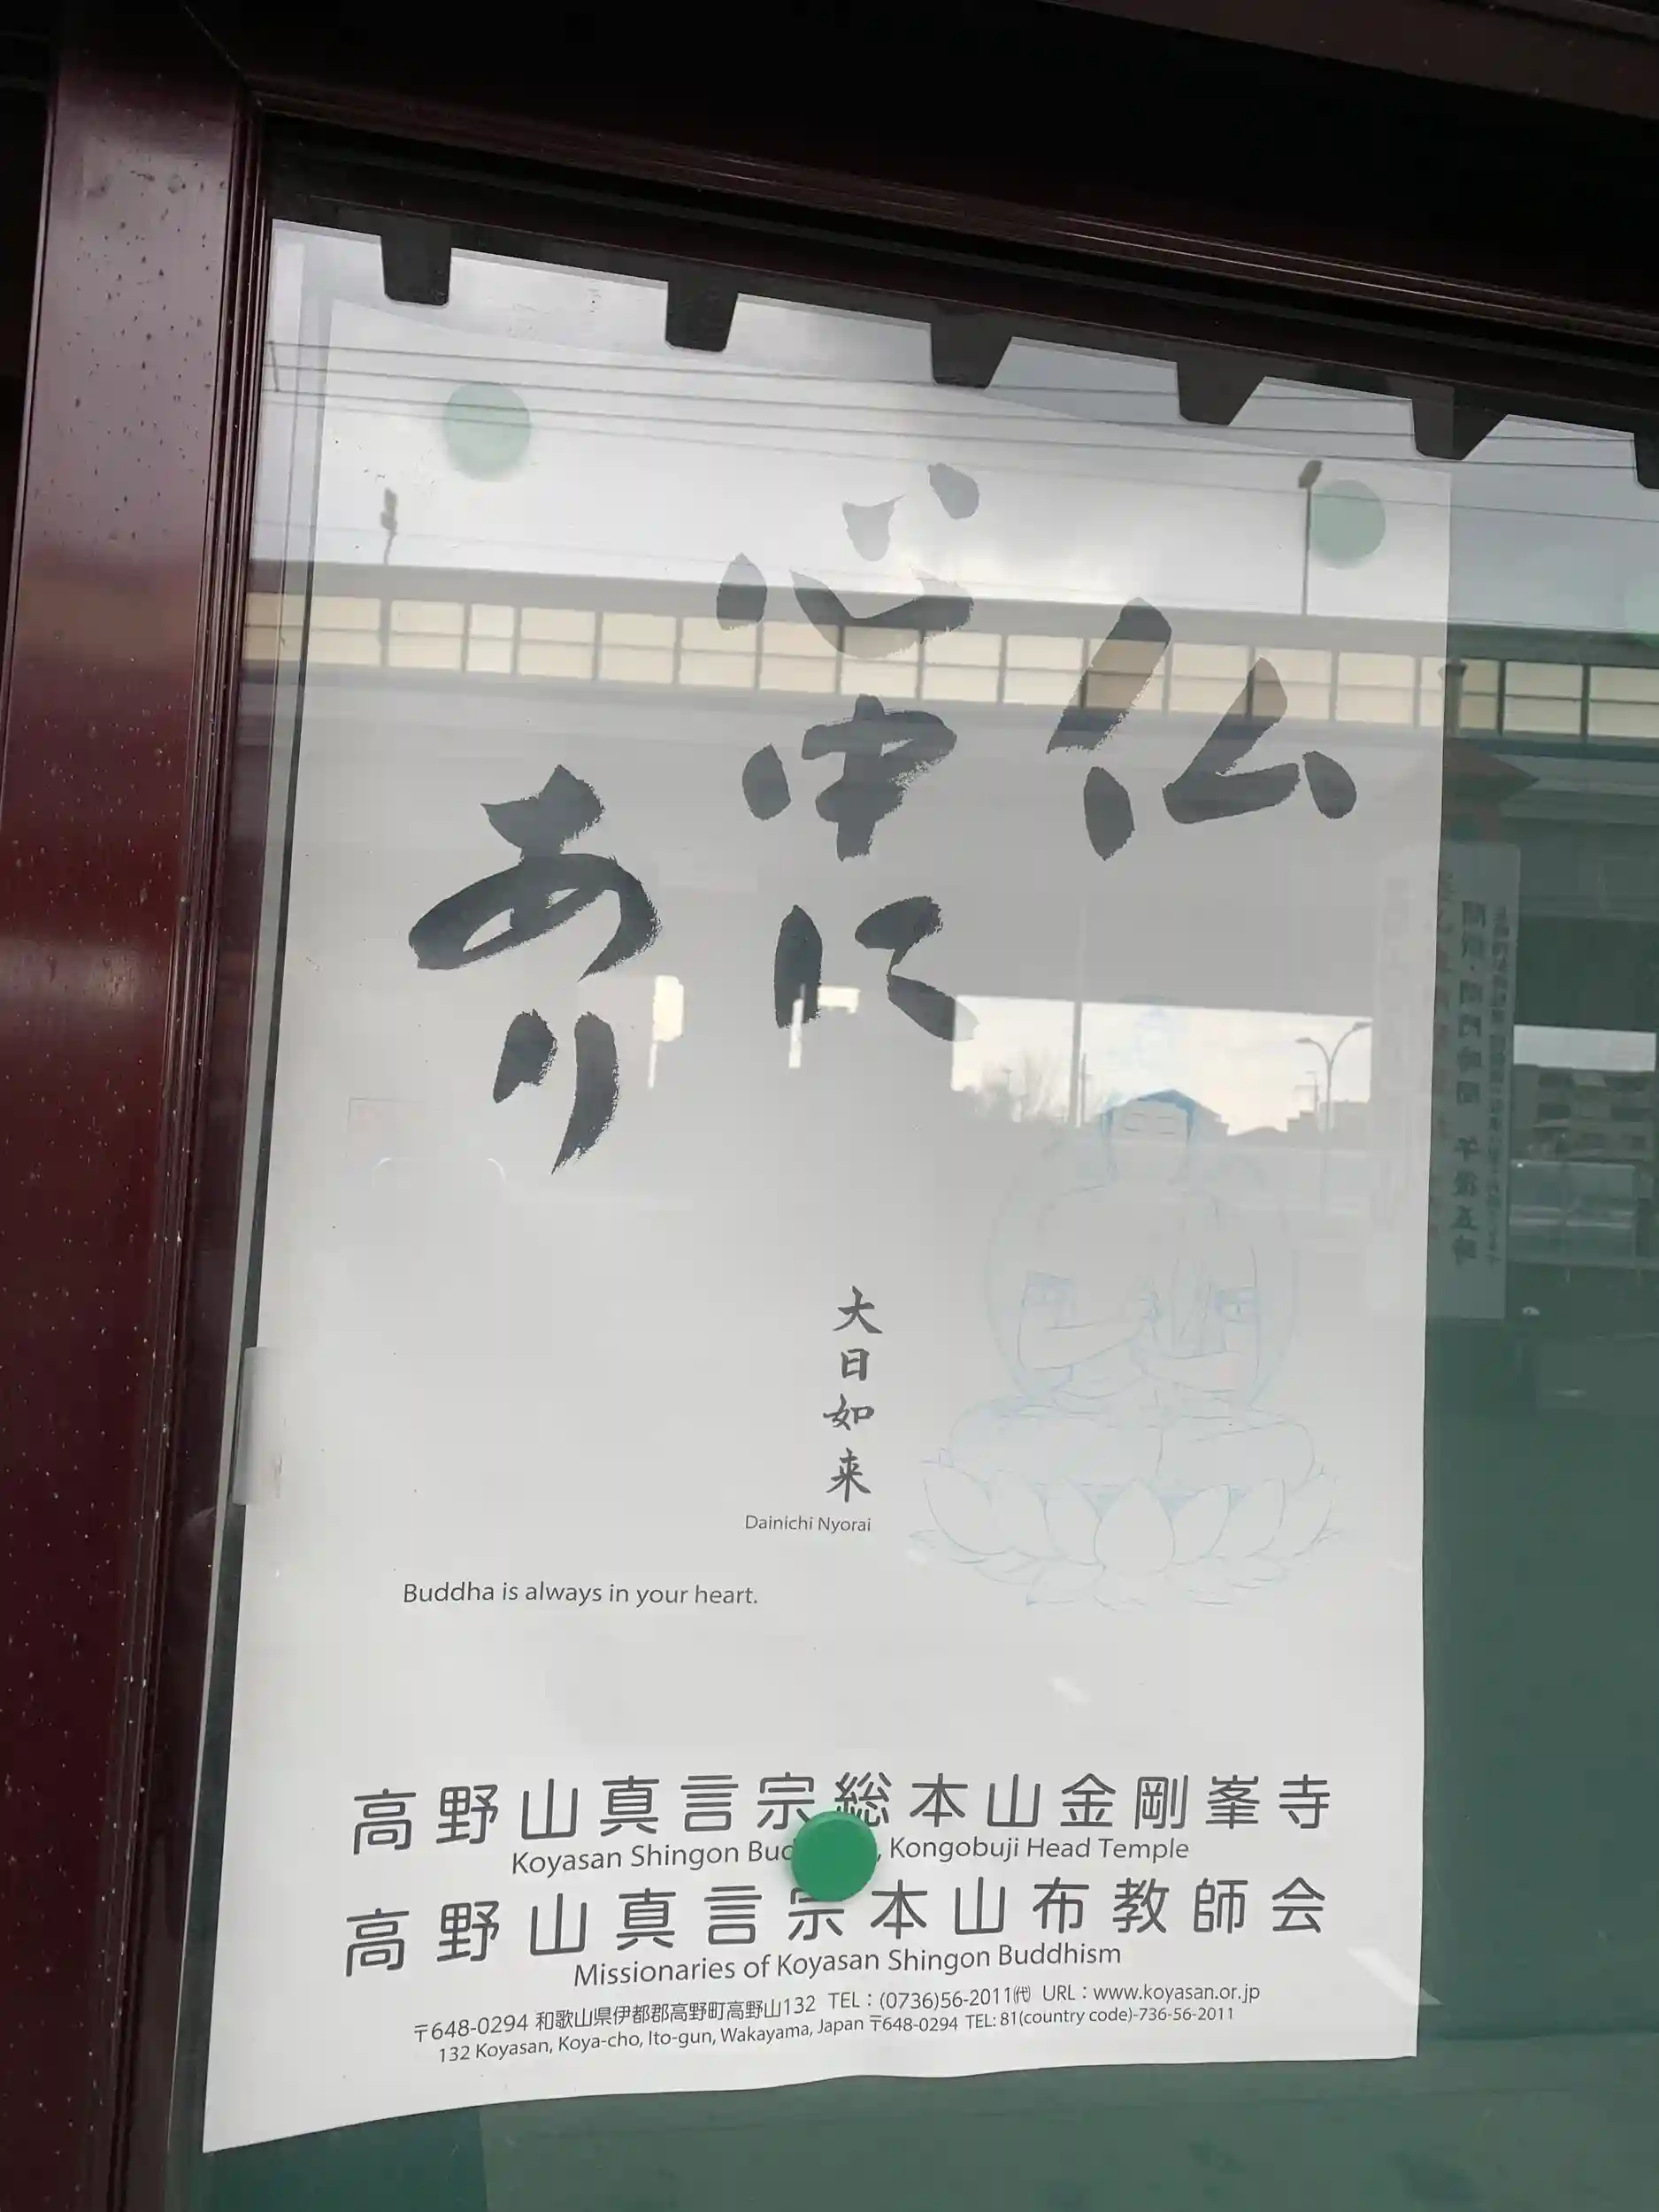 仏
心中に
あり
大日如来
Dainichi Nyorai
Buddha is always in your heart.
高野山真言宗総本山金剛峯寺
Koyasan Shingon Bud , Kongobuji Head Temple
高野山真言宗本山布教師会
Missionaries of Koyasan Shingon Buddhism
〒648-0294 和歌山県伊都郡高野町高野山132 TEL：(0736)56-2011㈹ URL：www.koyasan.or.jp
132 Koyasan, Koya-cho, Ito-gun, Wakayama, Japan 〒648-0294 TEL: 81(country code)-736-56-2011